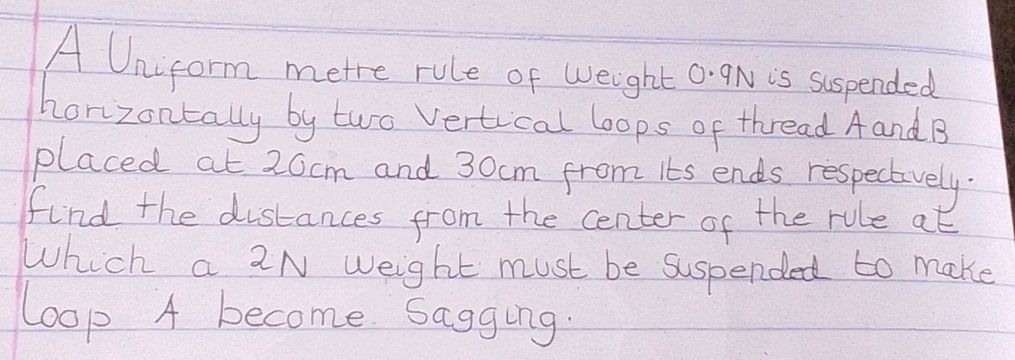 A Uniform metre rule of weight 0.9N is suspended
horizontally by two vertical loops of thread A and B
placed at 20cm and 30cm from its ends respectively.
find the distances from the center of the rule at
which a 2N weight must be suspended to make
loop A become sagging.